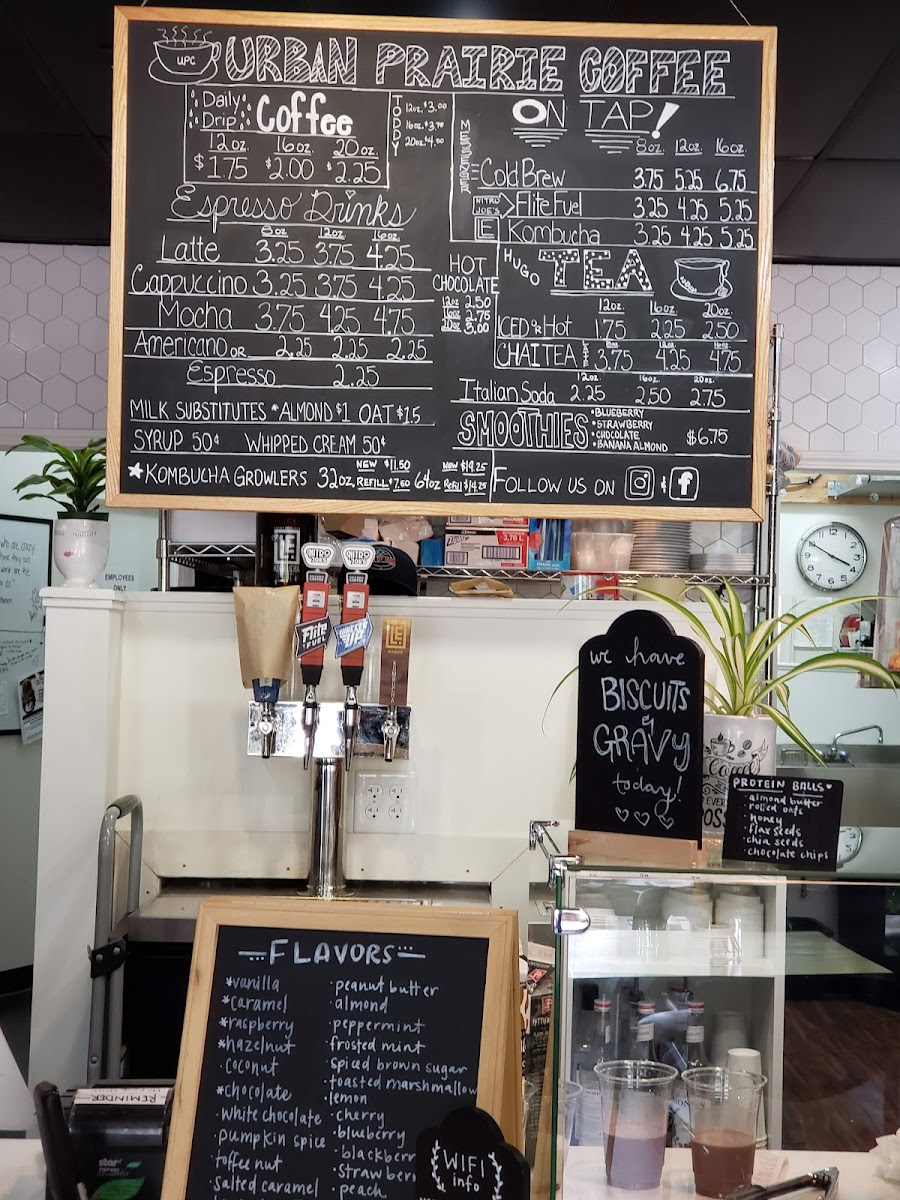 UPC
URBAN PRAIRIE COFFEE
Daily Drip Coffee
12oz. 16oz. 20oz.
$1.75 $2.00 $2.25
TODDY
12oz. $3.00
16oz. $3.70
20oz. $4.50
Espresso Drinks
8oz. 12oz. 16oz.
Latte 3.25 3.75 4.25
Cappuccino 3.25 3.75 4.25
Mocha 3.75 4.25 4.75
Americano or 2.25 2.25 2.25
Espresso 2.25
MILK SUBSTITUTES *ALMOND $1 OAT $1.5
SYRUP 50¢ WHIPPED CREAM 50¢
*KOMBUCHA GROWLERS 32oz. NEW $11.50 REFILL $7.50 64oz NEW $19.25 Refill $14.25
HOT CHOCOLATE
12oz 2.50
16oz 2.75
20oz 3.00
ON TAP!
8oz. 12oz. 16oz.
MESSENGER
Cold Brew 3.75 5.25 6.75
NITRO JOE'S Flite Fuel 3.25 4.25 5.25
LE Kombucha 3.25 4.25 5.25
HUGO TEA
12oz. 16oz. 20oz.
ICED or Hot 1.75 2.25 2.50
CHAI TEA 3.75 4.25 4.75
12oz. 16oz. 20oz.
Italian Soda 2.25 2.50 2.75
SMOOTHIES $6.75
•BLUEBERRY
•STRAWBERRY
•CHOCOLATE
•BANANA ALMOND
FOLLOW US ON
EMPLOYEES
ONLY
LE
NITRO
NITRO
Flite
FUEL
LE
3,78 L
we have
BISCUITS
&
GRAVY
today!
PROTEIN BALLS
·almond butter
·rolled oats
·honey
·flax seeds
·chia seeds
·chocolate chips
FLAVORS
*vanilla
*caramel
*raspberry
*hazelnut
·coconut
*chocolate
·white chocolate
·pumpkin spice
·toffee nut
·salted caramel
·peanut butter
·almond
·peppermint
·frosted mint
·spiced brown sugar
·toasted marshmallow
·lemon
·cherry
·blueberry
·blackberr
·strawberr
·peach
WIFI
info
REMINDER
star